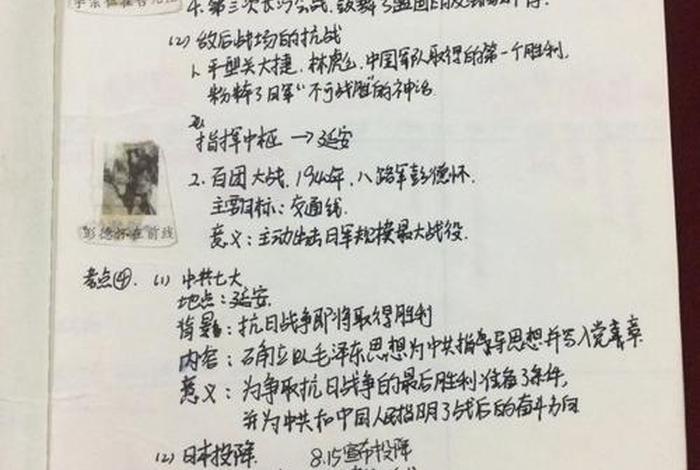 李宗仁在台儿庄
4. 第三次长沙会战,鼓舞了全国
(2) 敌后战场的抗战
1. 平型关大捷,林彪,中国军队取得的第一个胜利,
粉碎了日军“不可战胜”的神话
指挥中枢 → 延安
2. 百团大战,1940年,八路军彭德怀.
主要目标:交通线.
意义:主动出击日军规模最大战役.
彭德怀在前线
考点④. (1) 中共七大
地点:延安.
背景:抗日战争即将取得胜利
内容:确立以毛泽东思想为中共指导思想并写入党章
意义:为争取抗日战争的最后胜利准备了条件,
并为中共和中国人民指明了战后的奋斗方向
(2) 日本投降 8.15宣布投降